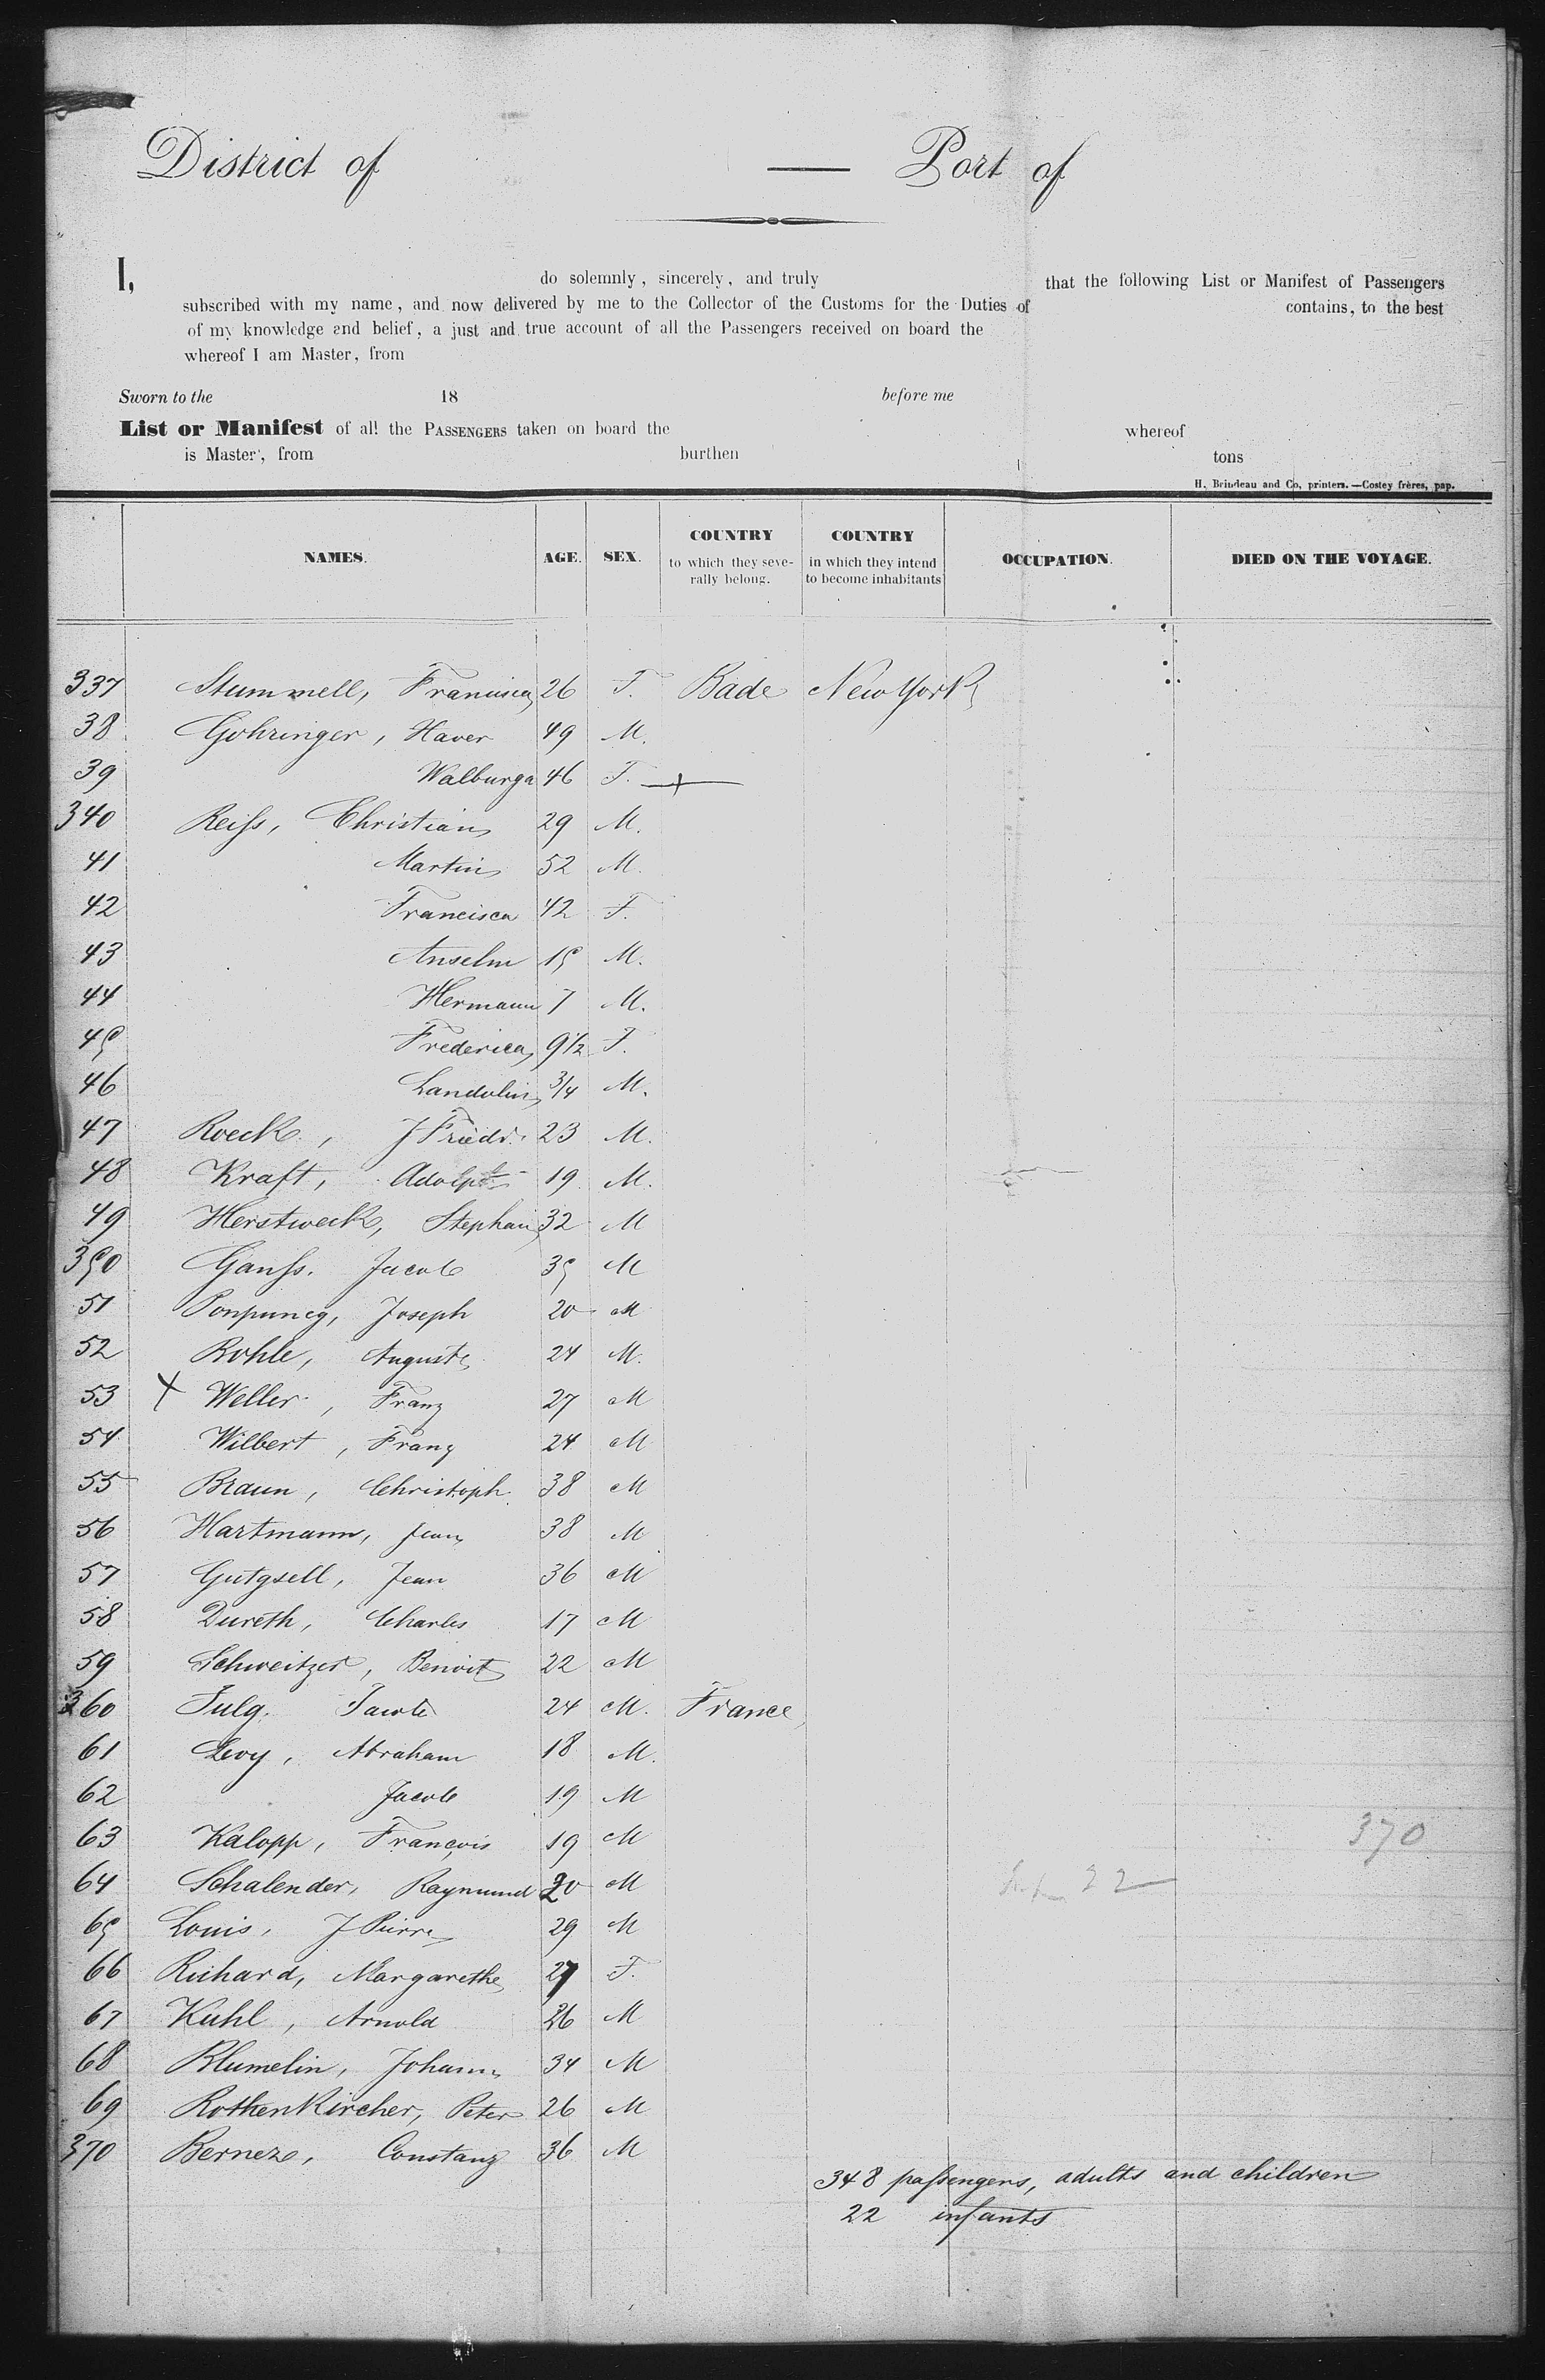 District of — Port of
I, do solemnly, sincerely, and truly that the following List or Manifest of Passengers
subscribed with my name, and now delivered by me to the Collector of the Customs for the Duties of contains, to the best
of my knowledge and belief, a just and true account of all the Passengers received on board the
whereof I am Master, from
Sworn to the 18 before me
List or Manifest of all the PASSENGERS taken on board the whereof
is Master, from burthen tons
H. Brindeau and Co, printers.—Costey frères, pap.
NAMES. AGE. SEX. COUNTRY to which they seve- rally belong. COUNTRY in which they intend to become inhabitants OCCUPATION. DIED ON THE VOYAGE.
337 Stummell, Francisca 26 F. Bade New York
38 Gohringer, Xaver 49 M.
39 Walburga 46 F.
340 Reiſs, Christian 29 M.
41 Martin 52 M.
42 Francisca 42 F.
43 Anselm 15 M.
44 Hermann 7 M.
45 Frederica 9 1/2 F.
46 Landolin 3/4 M.
47 Roeck, J Friedr. 23 M.
48 Kraft, Adolph 19 M.
49 Herstweck, Stephan 32 M
350 Ganſs. Jacob 35 M
51 Joseph 20 M
52 Rohle, Auguste 24 M.
53 X Weller, Franz 27 M
54 Wilbert, Franz 24 M
55 Braun, Christoph. 38 M
56 Hartmann, Jean 38 M
57 Gutgsell, Jean 36 M
58 Dureth, Charles 17 M
59 Schweitzer, Benoit 22 M
360 Julg. Jacob 24 M. France
61 Levy, Abraham 18 M.
62 Jacob 19 M
63 Kalopp, François 19 M 370
64 Schalender, Raymund 20 M 22
65 Louis, J Pierre 29 M
66 Richard, Margarethe 27 F.
67 Kuhl, Arnold 26 M
68 Blumelin, Johann 34 M
69 Rothenkircher, Peter 26 M
370 Berneze, Constanz 36 M
348 paſsengers, adults and children
22 infants